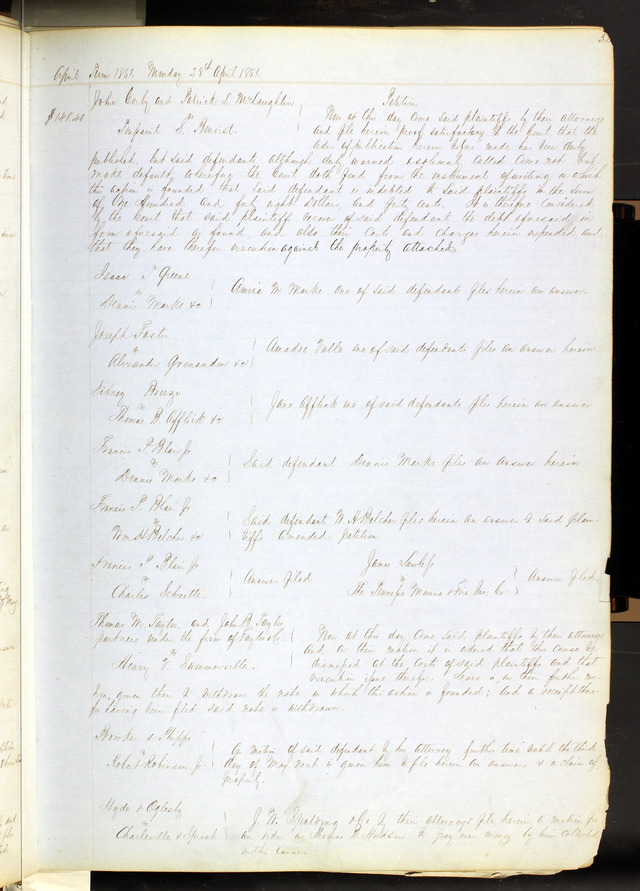 April Term 1851. Monday 28th April 1851.
John Corby and Patrick S. McLaughlin
vs
Sd. Benoist.
} Petition
$148.40
Now at this day come said plaintiffs by their attorneys
and file herein proof satisfactory to the Court that the
order of publication herein before made has been duly
published, but said defendant although duly warned & solemnly called come not but
make default, wherefore the Court doth find from the instrument of writing on which
this action is founded that said defendant is indebted to said plaintiffs in the sum
of One Hundred and forty eight Dollars, and forty cents. It is therefore considered
by the Court that said plaintiffs recover of said defendant the debt aforesaid in
form aforesaid as found, and also their Costs and Charges herein expended, and
that they have therefor execution against the property attached
Isaac T. Greene
vs
Dennis Marks &c
} Amira M. Marks one of said defendants files herein an answer
Joseph Foster
vs
Alexander &c
} Amadee Valle one of said defendants files an answer herein
Sidney Breeze
vs
Thomas B Afflick &c
} Jane Afflick one of said defendants files herein an answer
Francis P. Blair Jr
vs
Dennis Marks &c
} Said defendant Dennis Marks files an answer herein
Francis P. Blair Jr
vs
Wm. H Belcher &c
} Said defendant W. H Belcher files herein an answer to said plain-
tiffs amended petition
Francis P Blair Jr
vs
Charles Schuette
} Answer filed
James Lawless
vs
The Marine & Fire Ins. Co.
} Answer filed.
Thomas M. Taylor and John B. Taylor
partners under the firm of Taylor & C.
vs
Henry T. Summerville.
} Now at this day come said plaintiffs by their attorneys
and on their motion it is ordered that this cause be
dismissed at the costs of said plaintiffs and that
execution issue therefor. Leave is, on their further mo-
tion, given them to withdraw the note on which this action is founded; and a receipt there-
for having been filed said note is withdrawn.
& Phipps
vs
Robert Robinson Jr.
} On motion of said defendant by his attorney further time until the third
day of May next is given him to file herein an answer, & a claim of
property.
Hyde & Oglesby
vs
Charleville &
} J. W. Spalding & Co by their attorneys file herein a motion for
an order on Thomas to pay over money by him collected
in this cause.